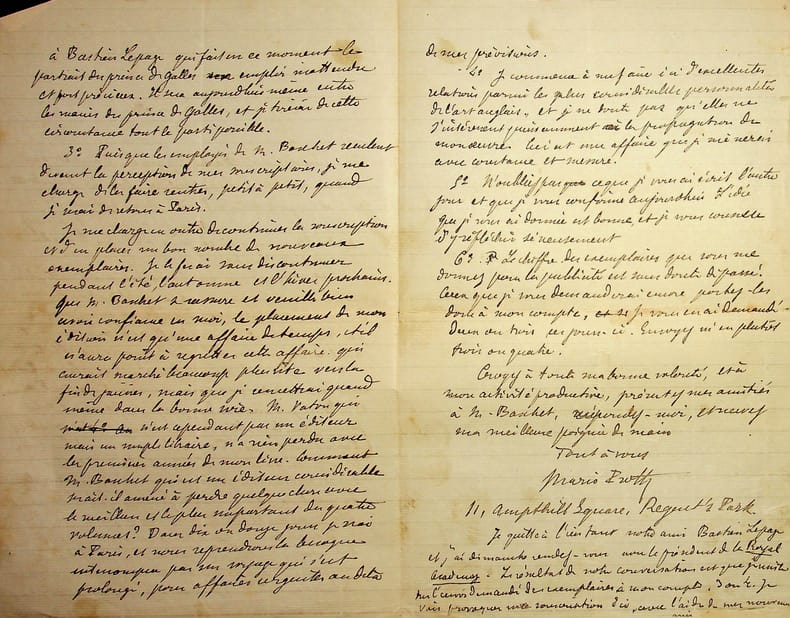 à Bastien Lepage qui fait en ce moment le
portrait du prince de Galles
et fort précieux. Il m'a aujourd'hui même
les mains du prince de Galles, et je tirerai de cette
circonstance tout le parti possible.
3º Puisque les employés de M. Baschet rendent
la perception de mes souscriptions, je me
charge de les faire rentrer, petit à petit, quand
je serai de retour à Paris.
Je me charge en outre de continuer la souscription
et d'en placer un bon nombre de nouveaux
exemplaires. Je le ferai sans discontinuer
pendant l'été, l'automne et l'hiver prochains.
Que M. Baschet se rassure et veuille bien
avoir confiance en moi, le placement de mon
édition n'est qu'une affaire de temps, et il
n'aura point à regretter cette affaire qui
aurait marché beaucoup plus vite vers la
fin de janvier, mais que je remettrai quand
même dans la bonne voie. M. Vaton qui
n'est cependant pas un éditeur
mais un simple libraire, n'a rien perdu avec
les premières années de mon livre. Comment
M. Baschet qui est un éditeur considérable
serait-il amené à perdre quelque chose avec
le meilleur et le plus important des quatre
volumes? Dans dix ou douze jours je serai
à Paris, et nous reprendrons la besogne
interrompue par un voyage qui s'est
prolongé, pour affaires urgentes au delà
de mes prévisions.
4º Je commence à me faire ici d'excellentes
relations parmi les plus considérables personnalités
de l'art anglais, et je ne doute pas qu'elles ne
s'intéressent puissamment à la propagation de
mon œuvre. Ceci est une affaire que je mènerai
avec constance et mesure.
5º N'oubliez pas ce que je vous ai écrit l'autre
jour et que je vous confirme aujourd'hui. L'idée
que je vous ai donnée est bonne, et je vous conseille
d'y réfléchir sérieusement
6º Le chiffre des exemplaires que vous me
donnez pour la publicité est sans doute dépassé.
Ceux que je vous demanderai encore portez-les
donc à mon compte, je vous en ai demandé
Deux ou trois ces jours-ci. Envoyez m'en plutôt
trois ou quatre.
Croyez à toute ma bonne volonté, et à
mon activité productive, présentez mes amitiés
à M. Baschet, répondez-moi, et recevez
ma meilleure poignée de main
Tout à vous
Mario Proth
11, Ampthill Square, Regent's Park.
Je quitte à l'instant notre ami Bastien Lepage
et j'ai dimanche rendez-vous avec le président de la Royal
Academy. Le résultat de notre conversation est que
demandé des exemplaires à mon compte, 3 ou 4. Je
vais provoquer une souscription d'ici, avec l'aide de mes nouveaux
amis